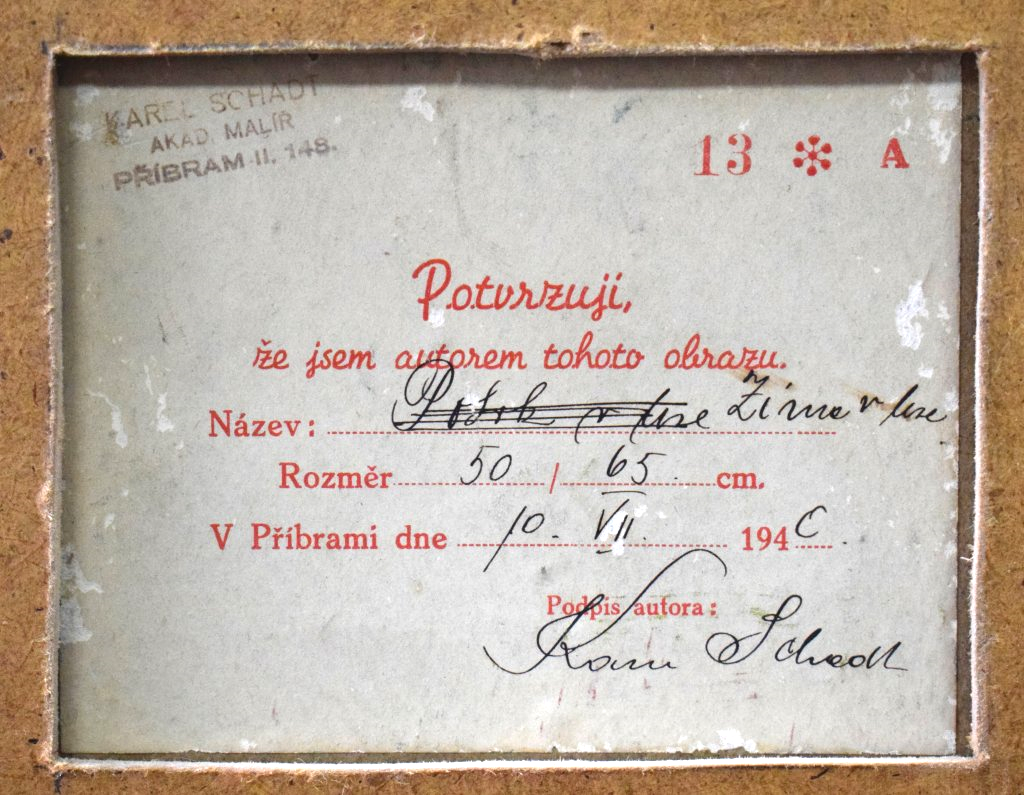 KAREL SCHADT
AKAD. MALÍŘ
PŘÍBRAM II. 148.
13 * A
Potvrzuji,
že jsem autorem tohoto obrazu.
Název: Potok v lese Zima v lese
Rozměr 50 / 65 cm.
V Příbrami dne 10. VII. 194
Podpis autora:
Karel Schadt